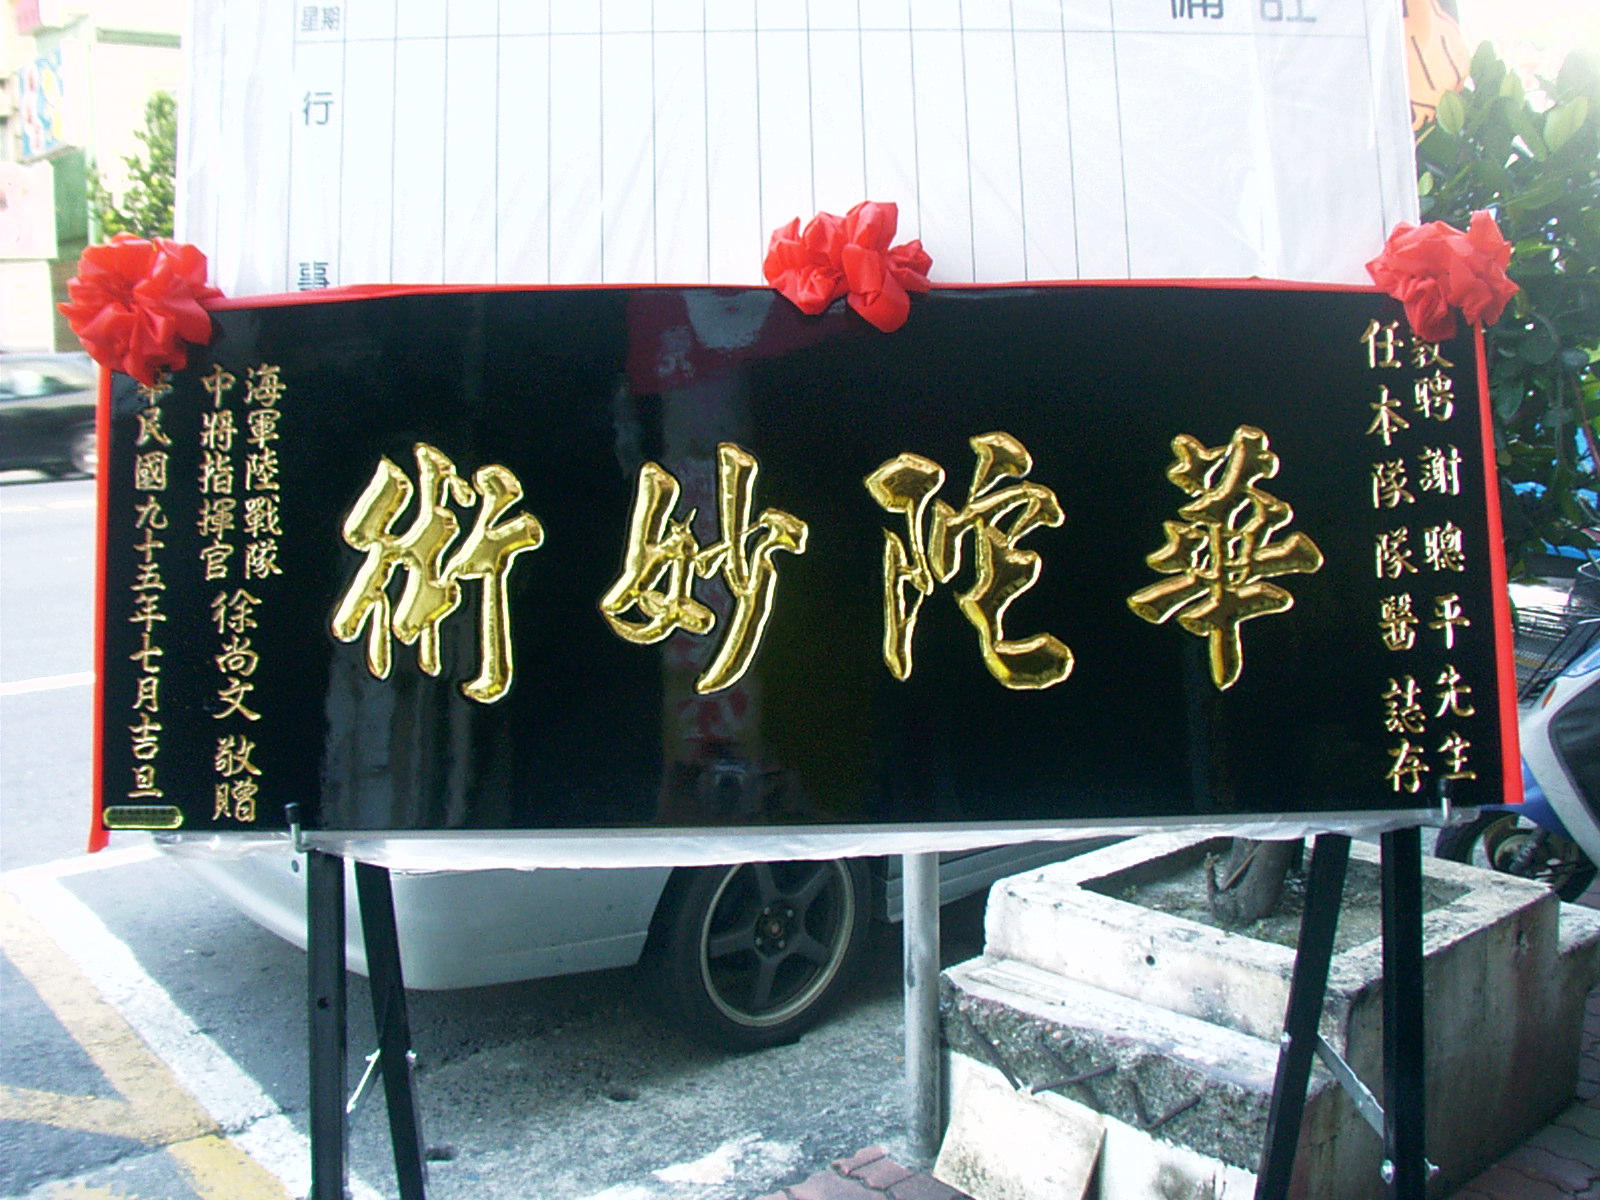 星期
行
事
備註
敦聘 謝聰平先生
任本隊隊醫 誌存
華陀妙術
海軍陸戰隊
中將指揮官徐尚文 敬贈
華民國九十五年七月吉旦